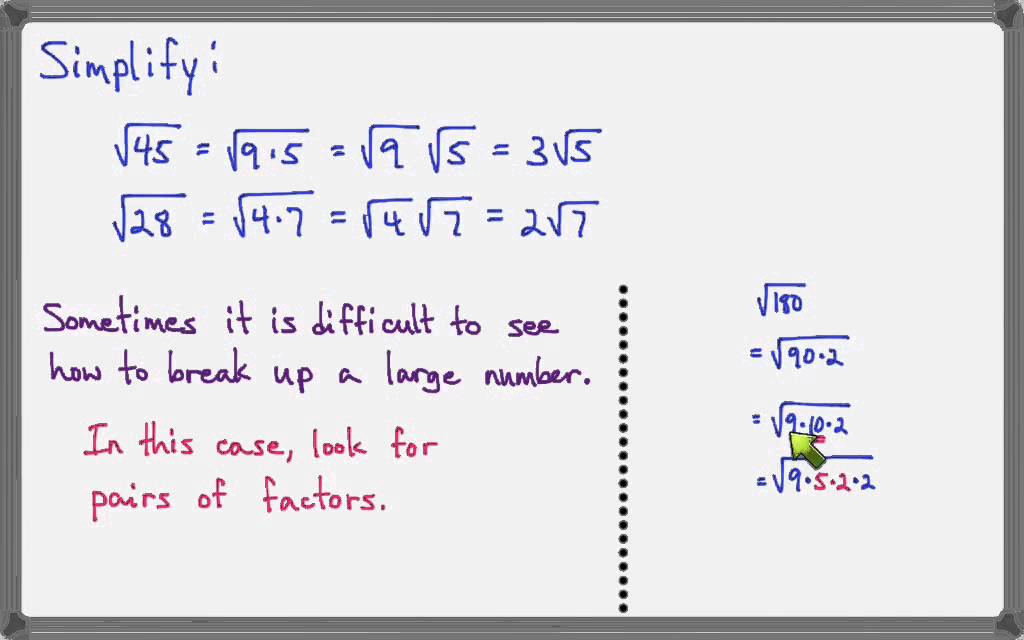 Simplify:
√45 = √9·5 = √9 √5 = 3√5
√28 = √4·7 = √4 √7 = 2√7
Sometimes it is difficult to see
how to break up a large number.
In this case, look for
pairs of factors.
√180
= √90·2
= √9·10·2
= √9·5·2·2